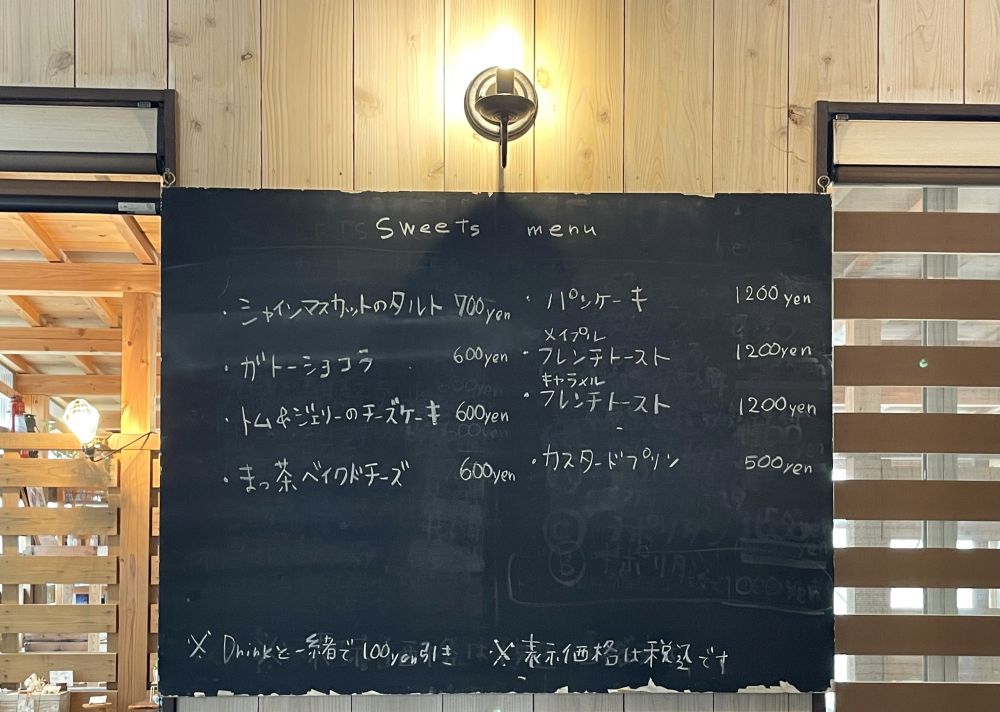 Sweets menu
・シャインマスカットのタルト 700yen
・ガトーショコラ 600yen
・トム&ジェリーのチーズケーキ 600yen
・まっ茶ベイクドチーズ 600yen
・パンケーキ 1200yen
メイプル
・フレンチトースト 1200yen
キャラメル
・フレンチトースト 1200yen
・カスタードプリン 500yen
※ Drinkと一緒で100yen引き
※ 表示価格は税込です